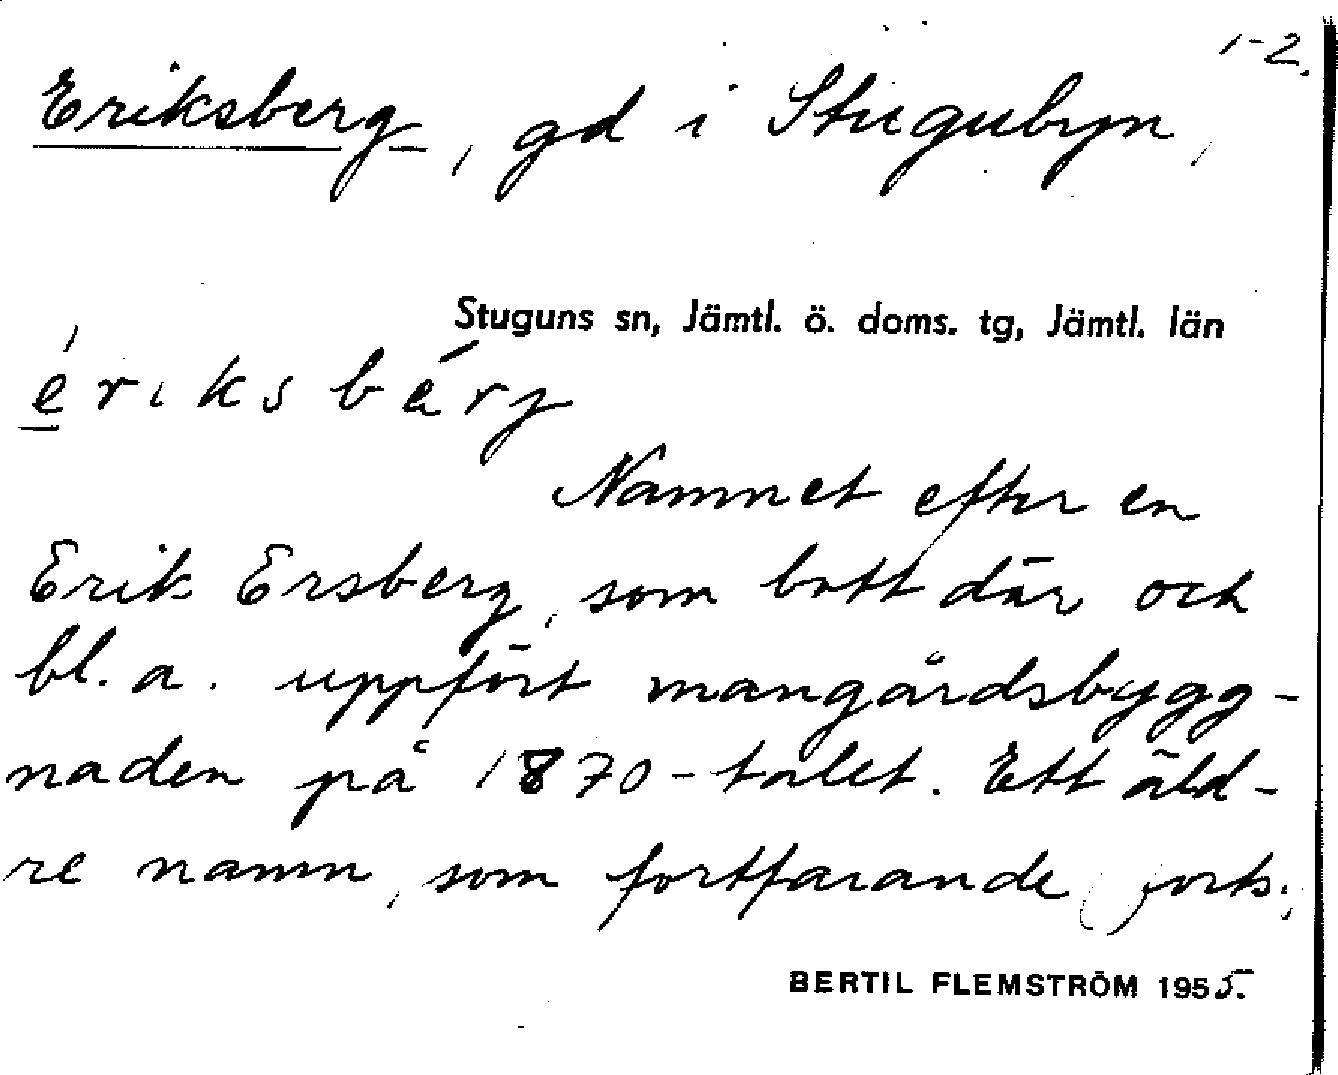 1-2.
Eriksberg, gd i Stugubyn,
Stuguns sn, Jämtl. ö. doms. tg, Jämtl. län
ériksbérj
Namnet efter en
Erik Ersberg, som bott där och
bl. a. uppfört mangårdsbygg-
naden på 1870-talet. Ett äld-
re namn, som fortfarande (forts.)
BERTIL FLEMSTRÖM 1955.